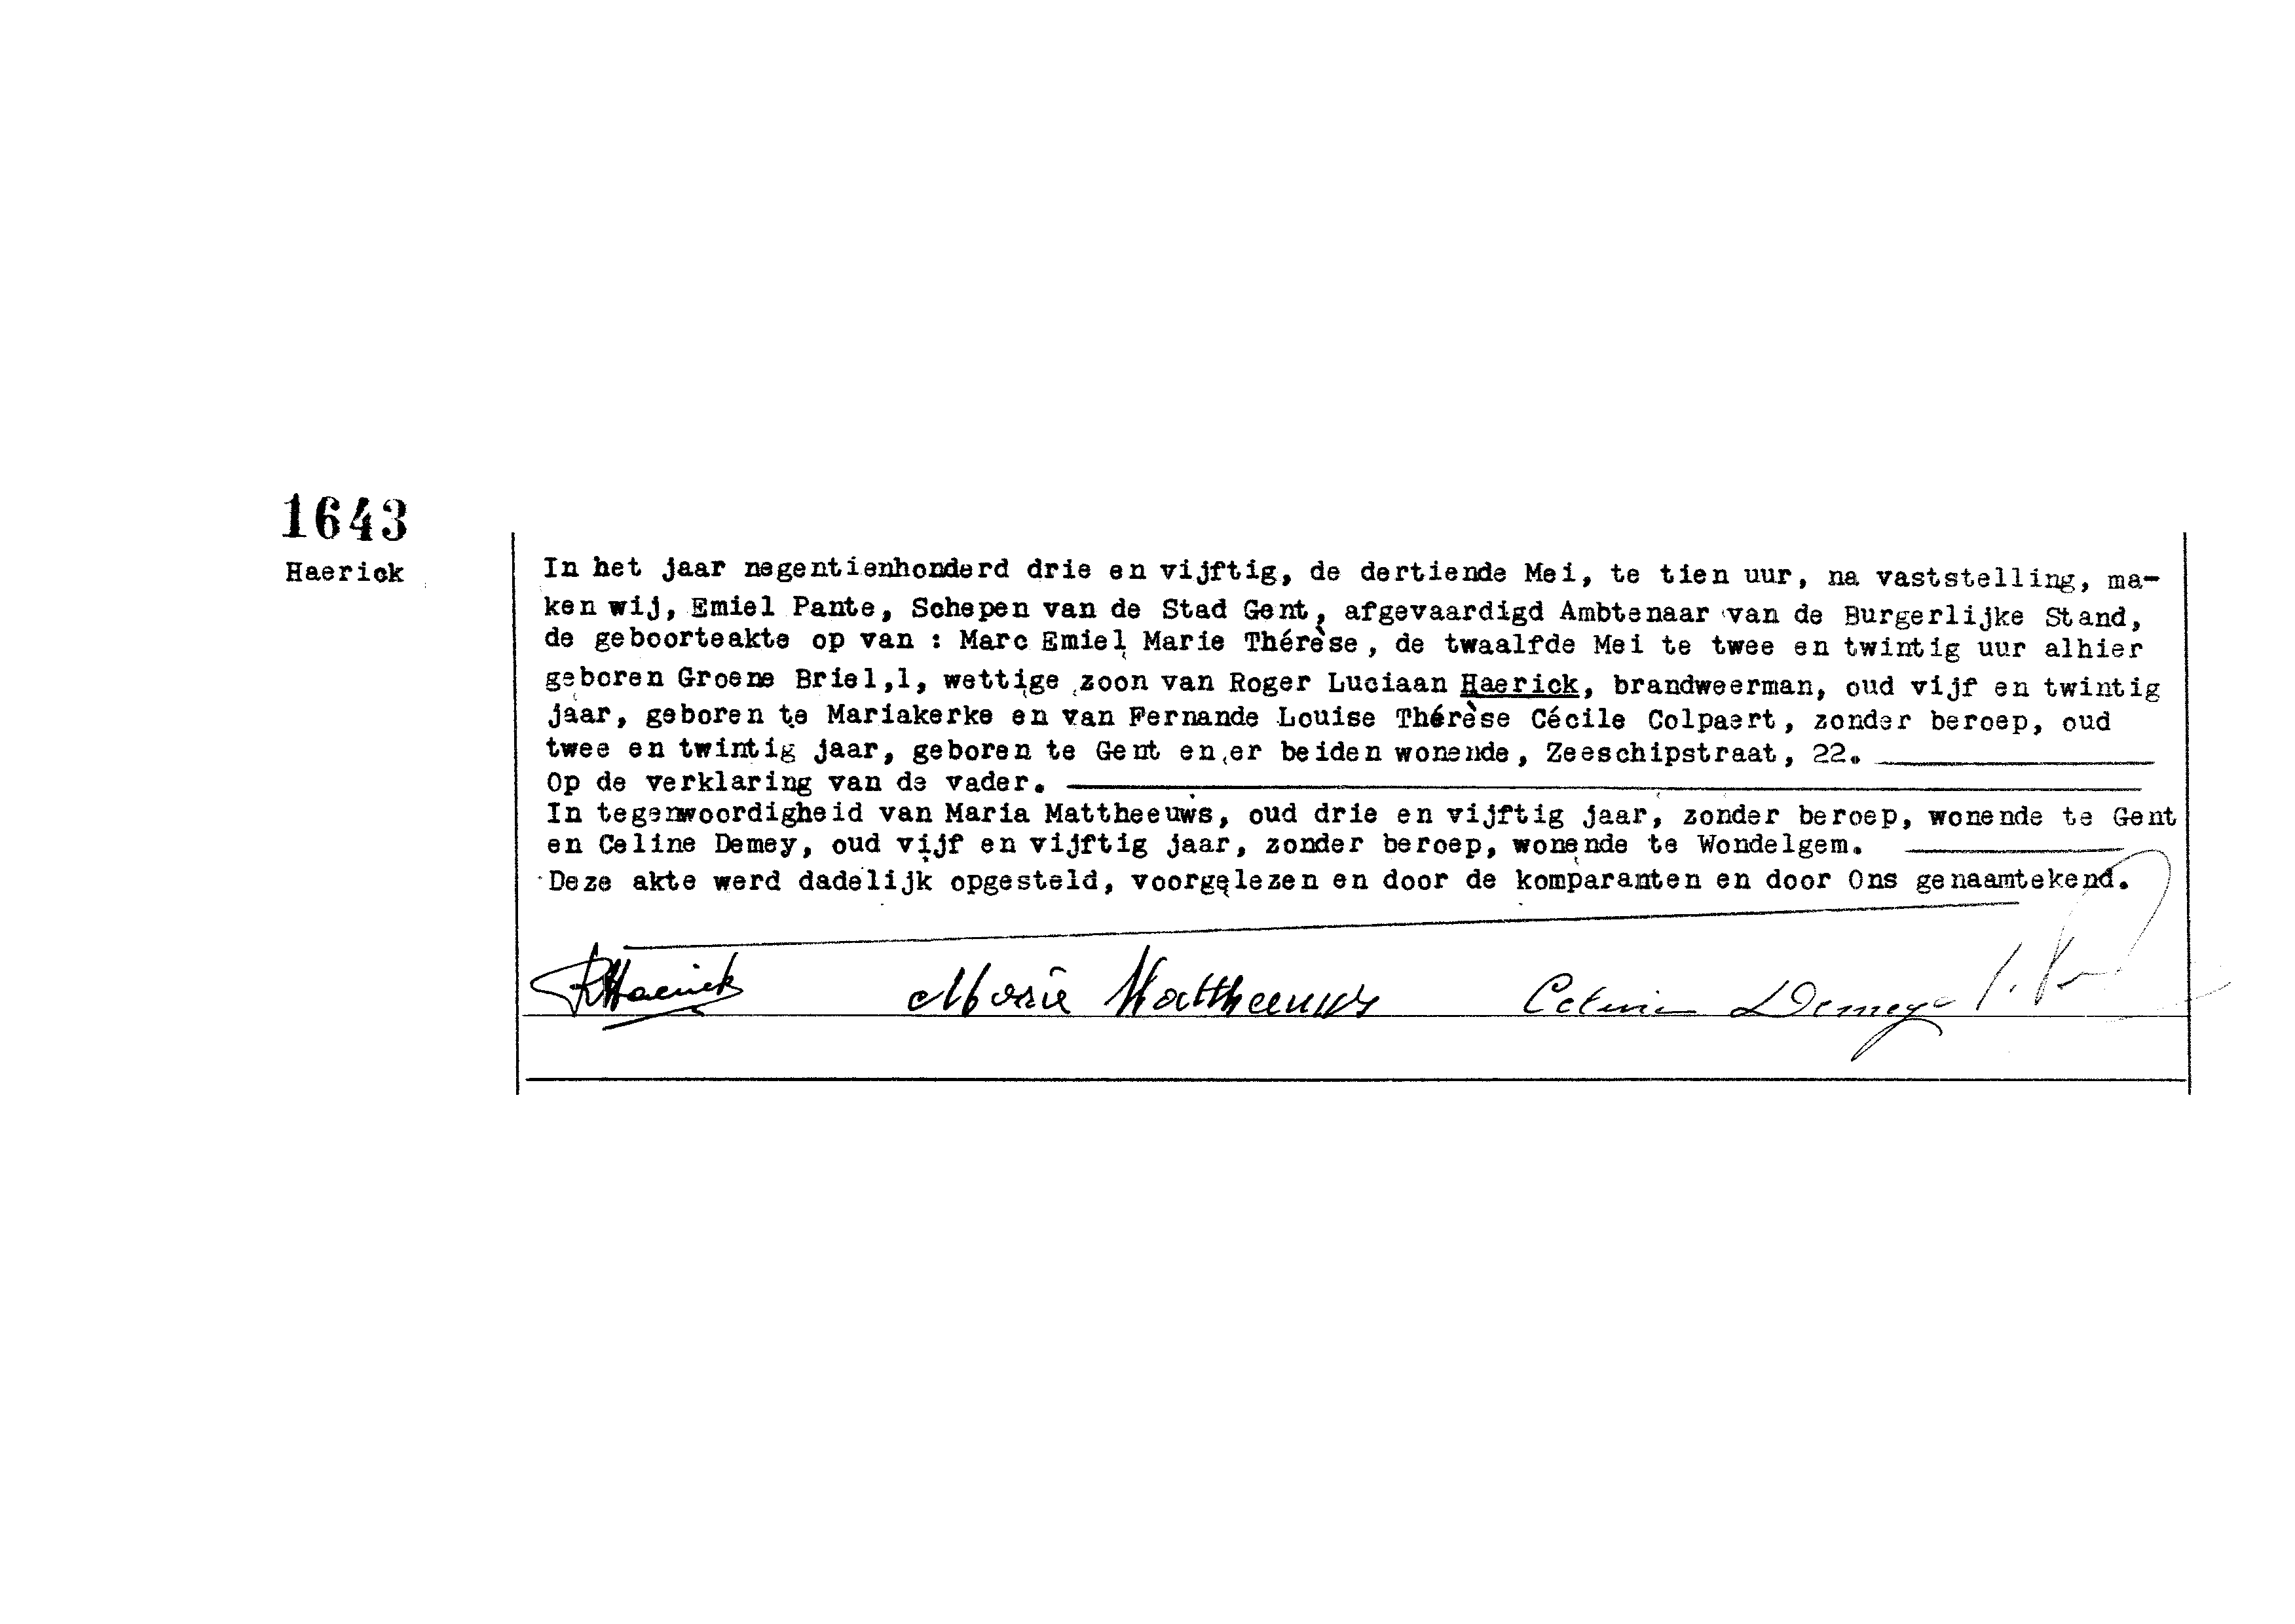 1643
Haerick
In het jaar negentienhonderd drie en vijftig, de dertiende Mei, te tien uur, na vaststelling, ma-
ken wij, Emiel Pante, Schepen van de Stad Gent, afgevaardigd Ambtenaar van de Burgerlijke Stand,
de geboorteakte op van : Marc Emiel Marie Thérèse, de twaalfde Mei te twee en twintig uur alhier
geboren Groene Briel,1, wettige zoon van Roger Luciaan Haerick, brandweerman, oud vijf en twintig
jaar, geboren te Mariakerke en van Fernande Louise Thérèse Cécile Colpaert, zonder beroep, oud
twee en twintig jaar, geboren te Gent en er beiden wonende, Zeeschipstraat, 22.
Op de verklaring van de vader.
In tegenwoordigheid van Maria Mattheeuws, oud drie en vijftig jaar, zonder beroep, wonende te Gent
en Celine Demey, oud vijf en vijftig jaar, zonder beroep, wonende te Wondelgem.
Deze akte werd dadelijk opgesteld, voorgelezen en door de komparanten en door Ons genaamtekend.
RHaerick Marie Mattheeuws Celine Demeye